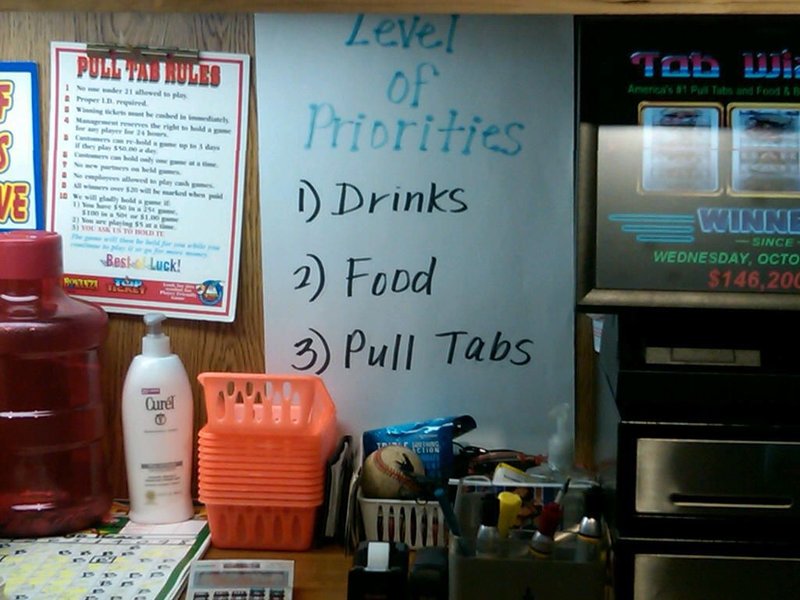 Level
of
Priorities
1) Drinks
2) Food
3) Pull Tabs
PULL TAB RULES
1 No one under 21 allowed to play.
2 Proper I.D. required.
3 Winning tickets must be cashed in immediately.
4 Management reserves the right to hold a game
for any player for 24 hours.
5 Customers can re-hold a game up to 3 days
if they play $50.00 a day.
6 Customers can hold only one game at a time.
7 No new partners on held games.
8 No employees allowed to play cash games.
9 All winners over $20 will be marked when paid
10 We will gladly hold a game if:
1) You have $50 in a 25¢ game,
$100 in a 50¢ or $1.00 game
2) You are playing $5 at a time.
3) YOU ASK US TO HOLD IT
The game will then be held for you while you
continue to play & or go for more money.
Best of Luck!
BONANZA
VE
Curél
Tab Wi
America's #1 Pull Tabs and Food & B
WINNE
SINCE
WEDNESDAY, OCTO
$146,200
TRIPLE